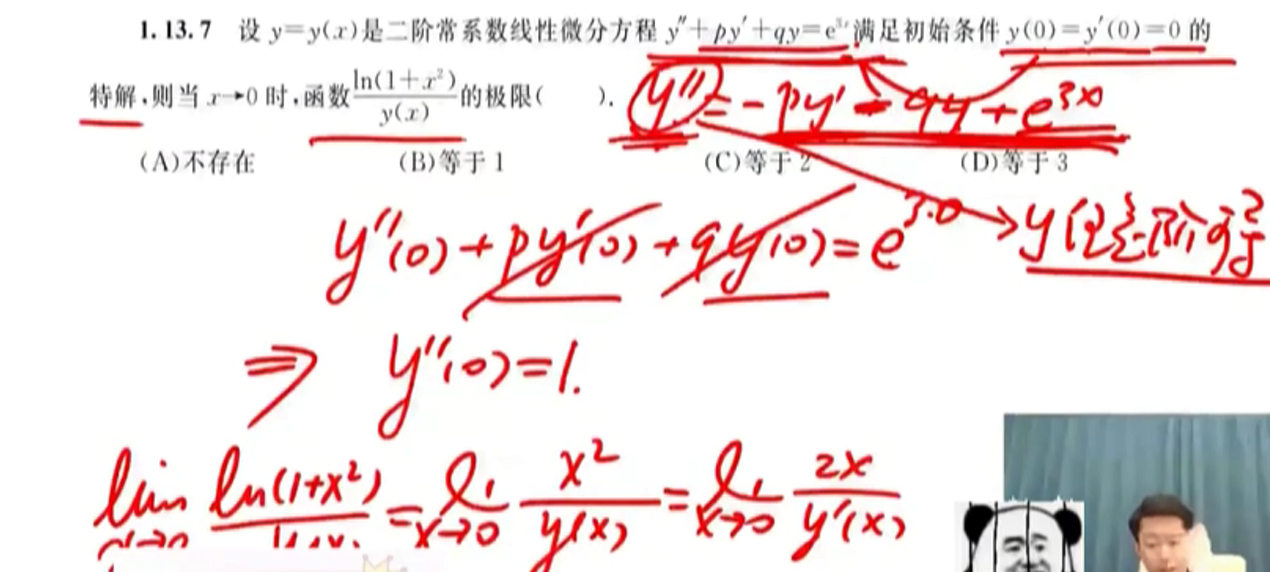 1.13.7 设 y=y(x)是二阶常系数线性微分方程 y″+py′+qy=e³ˣ 满足初始条件 y(0)=y′(0)=0 的
特解,则当 x→0 时,函数 ln(1+x²)/y(x) 的极限( ).
y″ = -py′ - qy + e³ˣ
(A)不存在 (B)等于 1 (C)等于 2 (D)等于 3
y″(0) + py′(0) + qy(0) = e³·⁰
y 二阶可导
⇒ y″(0) = 1.
lim ln(1+x²)/y(x) = lim x→0 x²/y(x) = lim x→0 2x/y′(x)